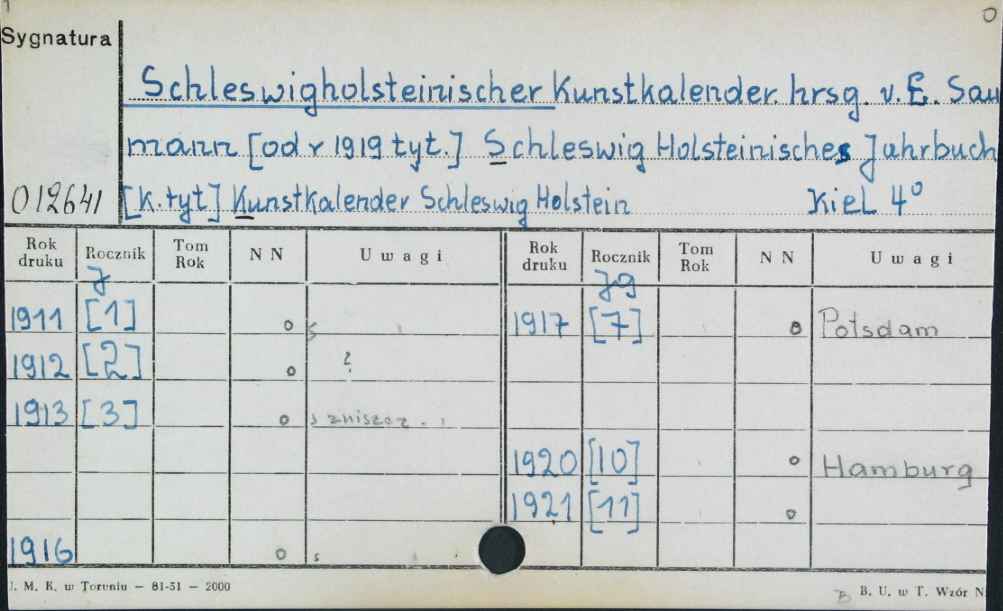 0
Sygnatura
Schleswigholsteinischer Kunstkalender. hrsg. v. E. Sau
mann [od r 1919 tyt.] Schleswig Holsteinisches Jahrbuch
012641 [K. tyt] Kunstkalender Schleswig Holstein Kiel 4°
Rok druku Rocznik Tom Rok N N Uwagi Rok druku Rocznik Tom Rok N N Uwagi
J Jg
1911 [1] o 1917 [7] o Potsdam
1912 [2] o ?
1913 [3] o s zniszcz.
1920 [10] o Hamburg
1921 [11] o
1916 o s
J. M. K. w Toruniu — 81-51 — 2000 B. U. w T. Wzór N